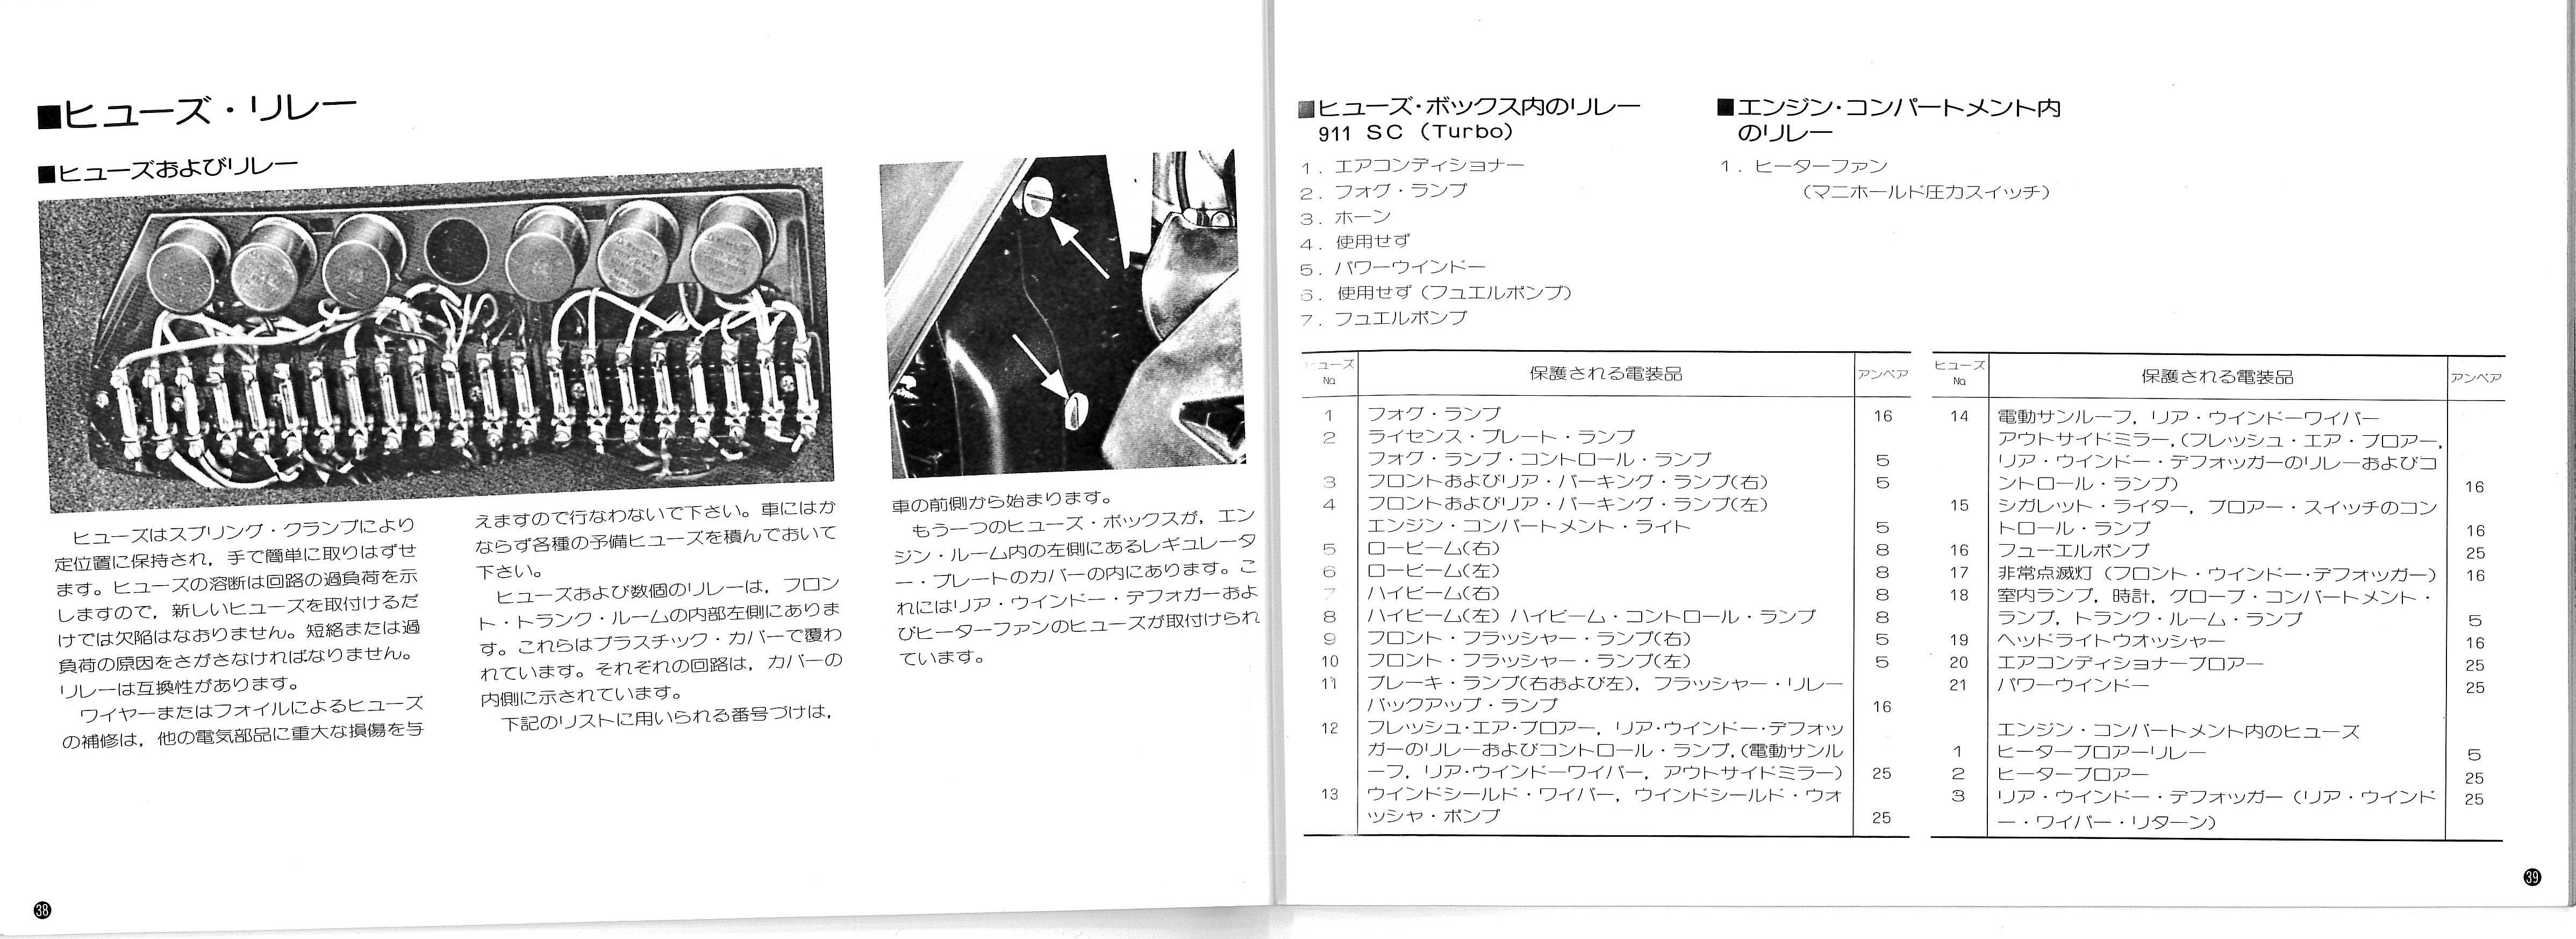 ■ヒューズ・リレー
■ヒューズおよびリレー
ヒューズはスプリング・クランプにより
定位置に保持され，手で簡単に取りはずせ
ます。ヒューズの溶断は回路の過負荷を示
しますので，新しいヒューズを取付けるだ
けでは欠陥はなおりません。短絡または過
負荷の原因をさがさなければなりません。
リレーは互換性があります。
ワイヤーまたはフォイルによるヒューズ
の補修は，他の電気部品に重大な損傷を与
えますので行なわないで下さい。車にはか
ならず各種の予備ヒューズを積んでおいて
下さい。
ヒューズおよび数個のリレーは，フロン
ト・トランク・ルームの内部左側にありま
す。これらはプラスチック・カバーで覆わ
れています。それぞれの回路は，カバーの
内側に示されています。
下記のリストに用いられる番号づけは，
車の前側から始まります。
もう一つのヒューズ・ボックスが，エン
ジン・ルーム内の左側にあるレギュレータ
ー・プレートのカバーの内にあります。こ
れにはリア・ウインドー・デフォガーおよ
びヒーターファンのヒューズが取付けられ
ています。
38
■ヒューズ・ボックス内のリレー
911 SC（Turbo）
1．エアコンディショナー
2．フォグ・ランプ
3．ホーン
4．使用せず
5．パワーウインドー
6．使用せず（フュエルポンプ）
7．フュエルポンプ
■エンジン・コンパートメント内
のリレー
1．ヒーターファン
（マニホールド圧力スイッチ）
ヒューズ
No. 保護される電装品 アンペア
1 フォグ・ランプ 16
2 ライセンス・プレート・ランプ
フォグ・ランプ・コントロール・ランプ 5
3 フロントおよびリア・パーキング・ランプ(右) 5
4 フロントおよびリア・パーキング・ランプ(左)
エンジン・コンパートメント・ライト 5
5 ロービーム(右) 8
6 ロービーム(左) 8
7 ハイビーム(右) 8
8 ハイビーム(左) ハイビーム・コントロール・ランプ 8
9 フロント・フラッシャー・ランプ(右) 5
10 フロント・フラッシャー・ランプ(左) 5
11 ブレーキ・ランプ(右および左)，フラッシャー・リレー
バックアップ・ランプ 16
12 フレッシュ・エア・ブロアー，リア・ウインドー・デフォッ
ガーのリレーおよびコントロール・ランプ，(電動サンル
ーフ，リア・ウインドーワイパー，アウトサイドミラー) 25
13 ウインドシールド・ワイパー，ウインドシールド・ウオ
ッシャ・ポンプ 25
ヒューズ
No. 保護される電装品 アンペア
14 電動サンルーフ，リア・ウインドーワイパー
アウトサイドミラー，(フレッシュ・エア・ブロアー，
リア・ウインドー・デフォッガーのリレーおよびコ
ントロール・ランプ) 16
15 シガレット・ライター，ブロアー・スイッチのコン
トロール・ランプ 16
16 フューエルポンプ 25
17 非常点滅灯（フロント・ウインドー・デフォッガー） 16
18 室内ランプ，時計，グローブ・コンパートメント・
ランプ，トランク・ルーム・ランプ 5
19 ヘッドライトウオッシャー 16
20 エアコンディショナーブロアー 25
21 パワーウインドー 25
エンジン・コンパートメント内のヒューズ
1 ヒーターブロアーリレー 5
2 ヒーターブロアー 25
3 リア・ウインドー・デフォッガー（リア・ウインド 25
ー・ワイパー・リターン）
39